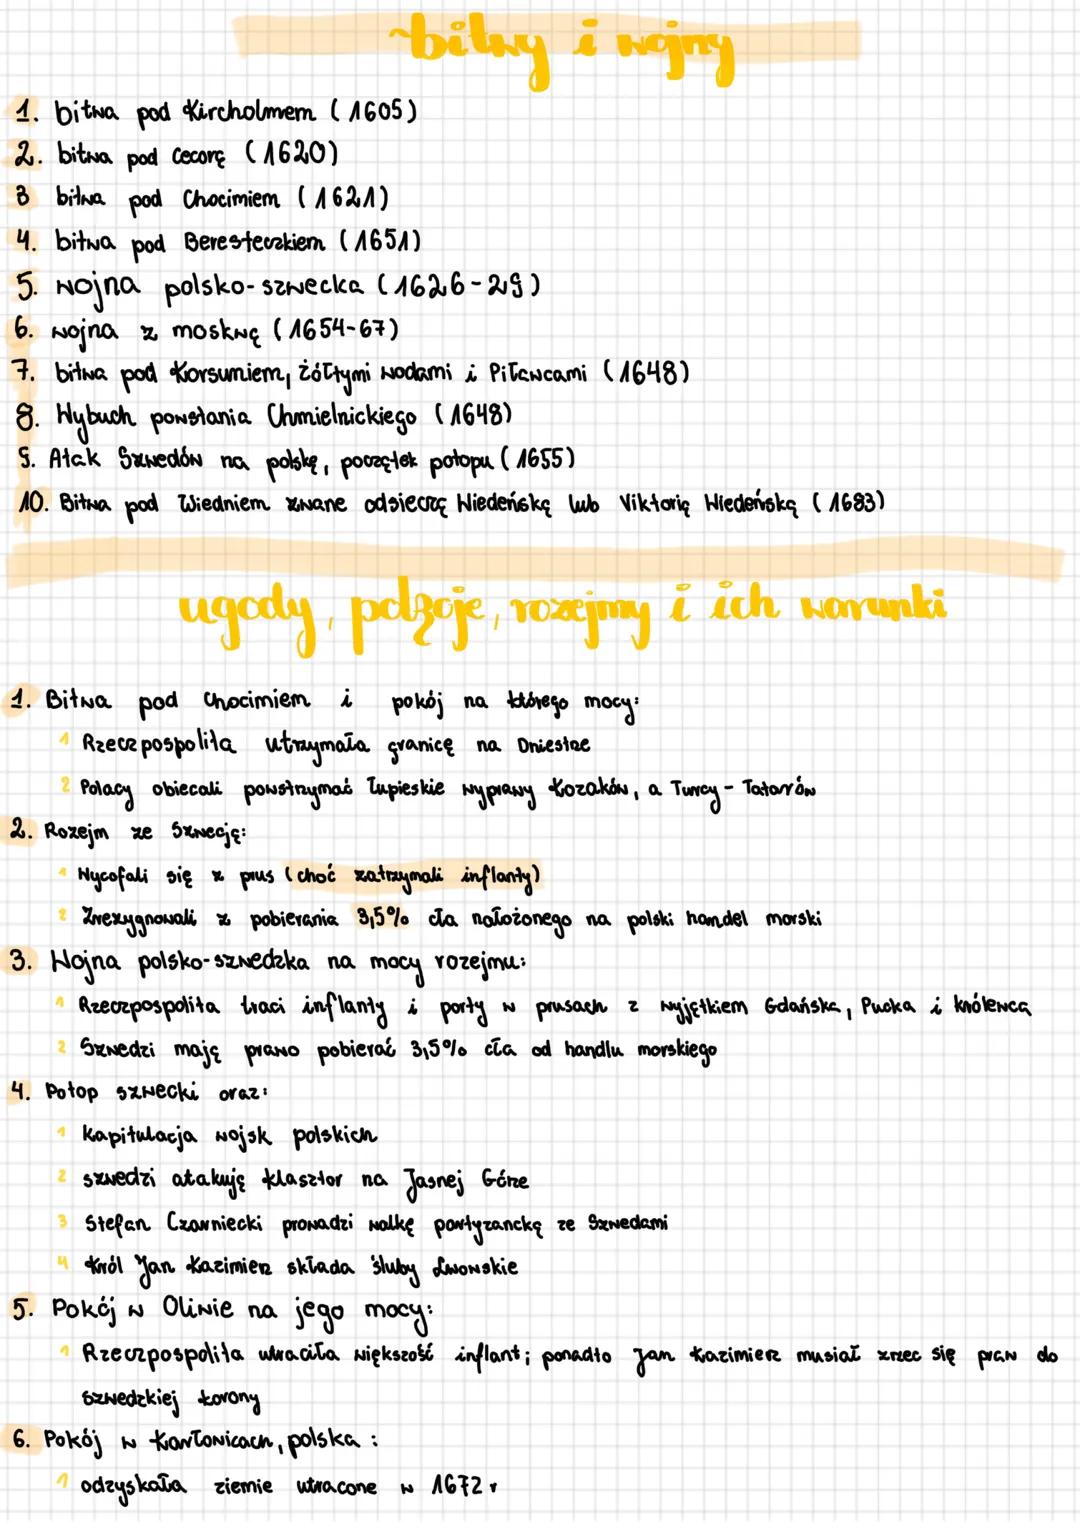 bitwy i wojny
1. bitwa pod Kircholmem (1605)
2. bitwa pod Cecorą (1620)
3 bitwa pod Chocimiem (1621)
4. bitwa pod Beresteczkiem (1651)
5. wojna polsko-szwecka (1626-29)
6. wojna z moskwą (1654-67)
7. bitwa pod Korsuniem, żółtymi wodami i Piławcami (1648)
8. Wybuch powstania Chmielnickiego (1648)
9. Atak Szwedów na polskę, początek potopu (1655)
10. Bitwa pod Wiedniem zwane odsieczą Wiedeńską lub Viktorią Wiedeńską (1683)
ugody, pokoje, rozejmy i ich warunki
1. Bitwa pod Chocimiem i pokój na którego mocy:
1 Rzeczpospolita utrzymała granicę na Dniestrze
2 Polacy obiecali powstrzymać łupieskie wyprawy kozaków, a Turcy - Tatarów
2. Rozejm ze Szwecją:
1 Wycofali się z prus (choć zatrzymali inflanty)
2 Zrezygnowali z pobierania 3,5% cła nałożonego na polski handel morski
3. Wojna polsko-szwedzka na mocy rozejmu:
1 Rzeczpospolita traci inflanty i porty w prusach z wyjątkiem Gdańska, Pucka i królewca
2 Szwedzi mają prawo pobierać 3,5% cła od handlu morskiego
4. Potop szwecki oraz:
1 kapitulacja wojsk polskich
2 szwedzi atakują klasztor na Jasnej Górze
3 Stefan Czarniecki prowadzi walkę partyzancką ze Szwedami
4 król Jan Kazimierz składa śluby Lwowskie
5. Pokój w Oliwie na jego mocy:
1 Rzeczpospolita utraciła większość inflant; ponadto Jan Kazimierz musiał zrzec się praw do
szwedzkiej korony
6. Pokój w Karłowicach, polska:
1 odzyskała ziemie utracone w 1672 r